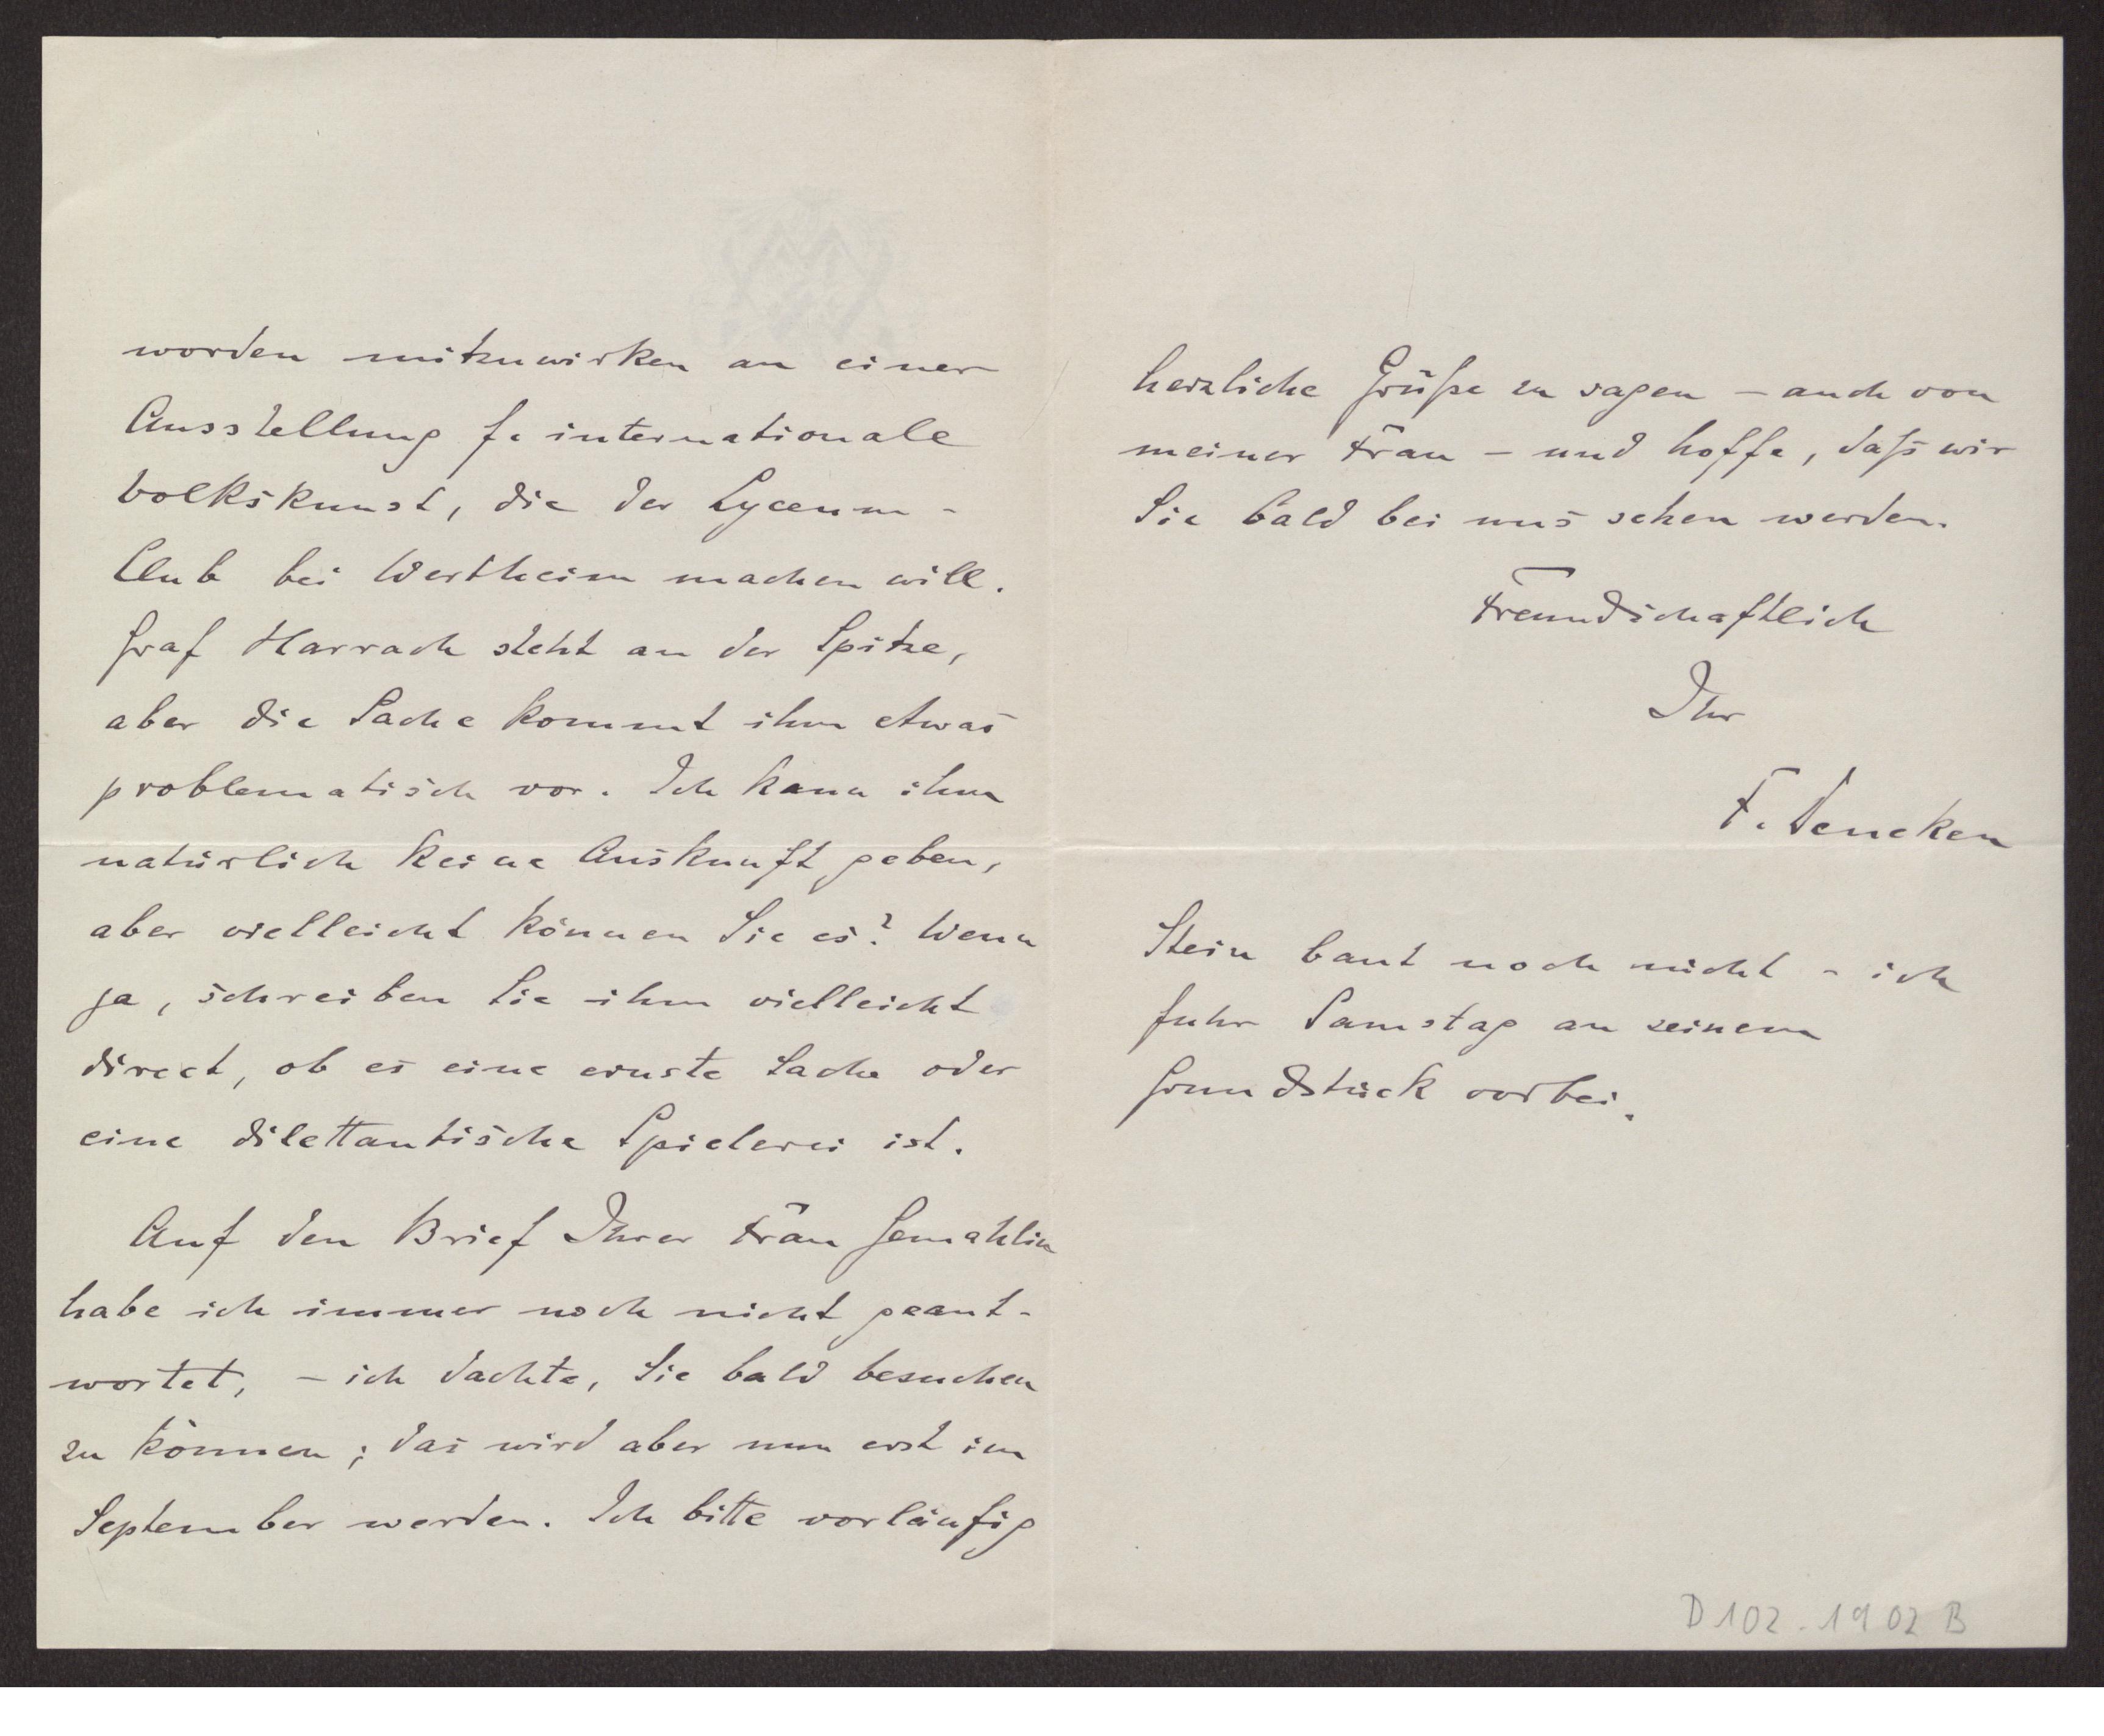 worden mitzuwirken an einer
Ausstellung f. internationale
Volkskunst, die der Lyceum-
Club bei Wertheim machen will.
Graf Harrach steht an der Spitze,
aber die Sache kommt ihm etwas
problematisch vor. Ich kann ihm
natürlich keine Auskunft geben,
aber vielleicht können Sie es? Wenn
ja, schreiben Sie ihm vielleicht
direct, ob es eine ernste Sache oder
eine dilettantische Spielerei ist.
Auf den Brief Ihrer Frau Gemahlin
habe ich immer noch nicht geant-
wortet, – ich dachte, Sie bald besuchen
zu können; das wird aber nun erst im
September werden. Ich bitte vorläufig
herzliche Grüße zu sagen – auch von
meiner Frau – und hoffe, daß wir
Sie bald bei uns sehen werden.
Freundschaftlich
Ihr
F. Deneken
Stein baut noch nicht – ich
fuhr Samstag an seinem
Grundstück vorbei.
D 102.1902 B